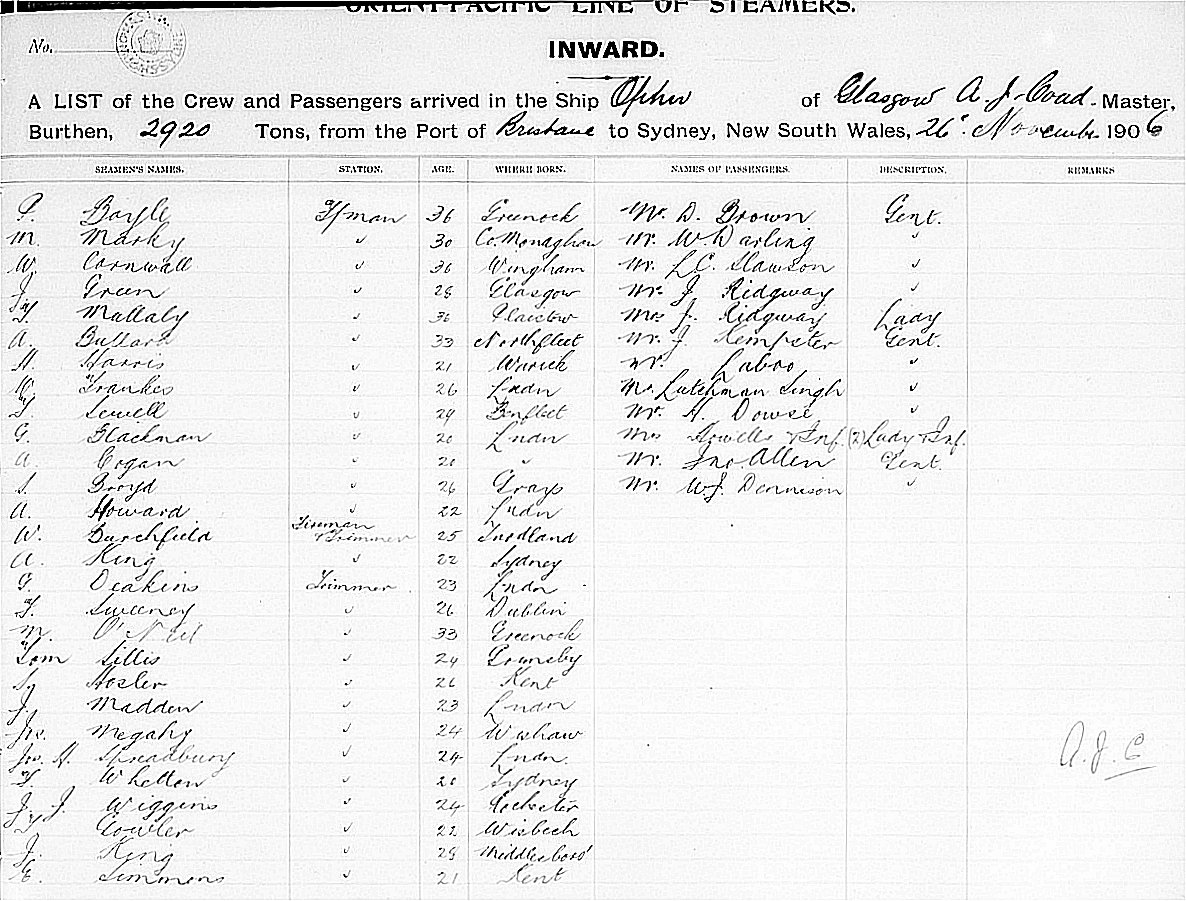 ORIENT-PACIFIC LINE OF STEAMERS.
No.
INWARD.
A LIST of the Crew and Passengers arrived in the Ship Ophir of Glasgow A. J. Coad Master,
Burthen, 2920 Tons, from the Port of Brisbane to Sydney, New South Wales, 26. November 1906
SEAMEN'S NAMES. STATION. AGE. WHERE BORN. NAMES OF PASSENGERS. DESCRIPTION. REMARKS
P. Boyle F/man 36 Greenock Mr. D. Brown Gent.
M. Marky " 30 Co. Monaghan Mr. W. Darling "
W. Cornwall " 36 Wingham Mr. L.C. Slawson "
J. Green " 28 Glasgow Mr. J. Ridgway "
T. Mallaly " 36 Plaistow Mrs J. Ridgway Lady
A. Bullard " 33 Northfleet Mr. J. Kempster Gent.
H. Harris " 21 Warick Mr. Labro "
W. Frankes " 26 Lndn Mr. Lutchman Singh "
T. Sewell " 24 Benfleet Mr. H. Dowse "
G. Blackman " 20 Lndn Mrs Howells & Inf. (2) Lady & Inf.
A. Cogan " 20 " Mr. Jno. Allen Gent.
S. Broyd " 26 Grays Mr. W.J. Dennison "
A. Howard " 22 Lndn
W. Burchfield Fireman & Trimmer 25
A. King " 22 Sydney
G. Deakins Trimmer 23 Lndn
T. Sweeney " 26 Dublin
M. O'Neil " 33 Greenock
Tom Lillis " 24 Grimsby
Hosler " 26 Kent
J. Madden " 23 Lndn
Jas. Megahy " 24 Wishaw
Jas. H. Spreadbury " 24 Lndn.
T. Whelton " 20 Sydney
J. J. Wiggins " 24 Rochester
Gowler " 22 Wisbech
J. King " 28 Middlesboro'
E. Simmons " 21 Kent
A. J. C